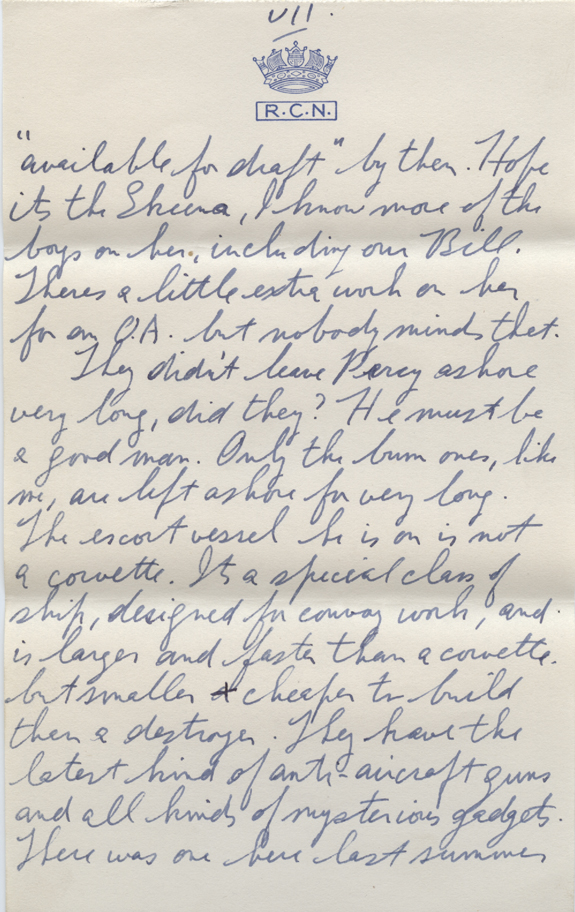 VII.
R.C.N.
"available for draft" by then. Hope
its the Skeena, I know more of the
boys on her, including our Bill.
Theres a little extra work on her
for an O.A. but nobody minds that.
They didn't leave Percy ashore
very long, did they? He must be
a good man. Only the bum ones, like
me, are left ashore for very long.
The escort vessel he is on is not
a corvette. Its a special class of
ship, designed for convoy work, and
is larger and faster than a corvette.
but smaller & cheaper to build
than a destroyer. They have the
latest kind of anti-aircraft guns
and all kinds of mysterious gadgets.
There was one here last summer